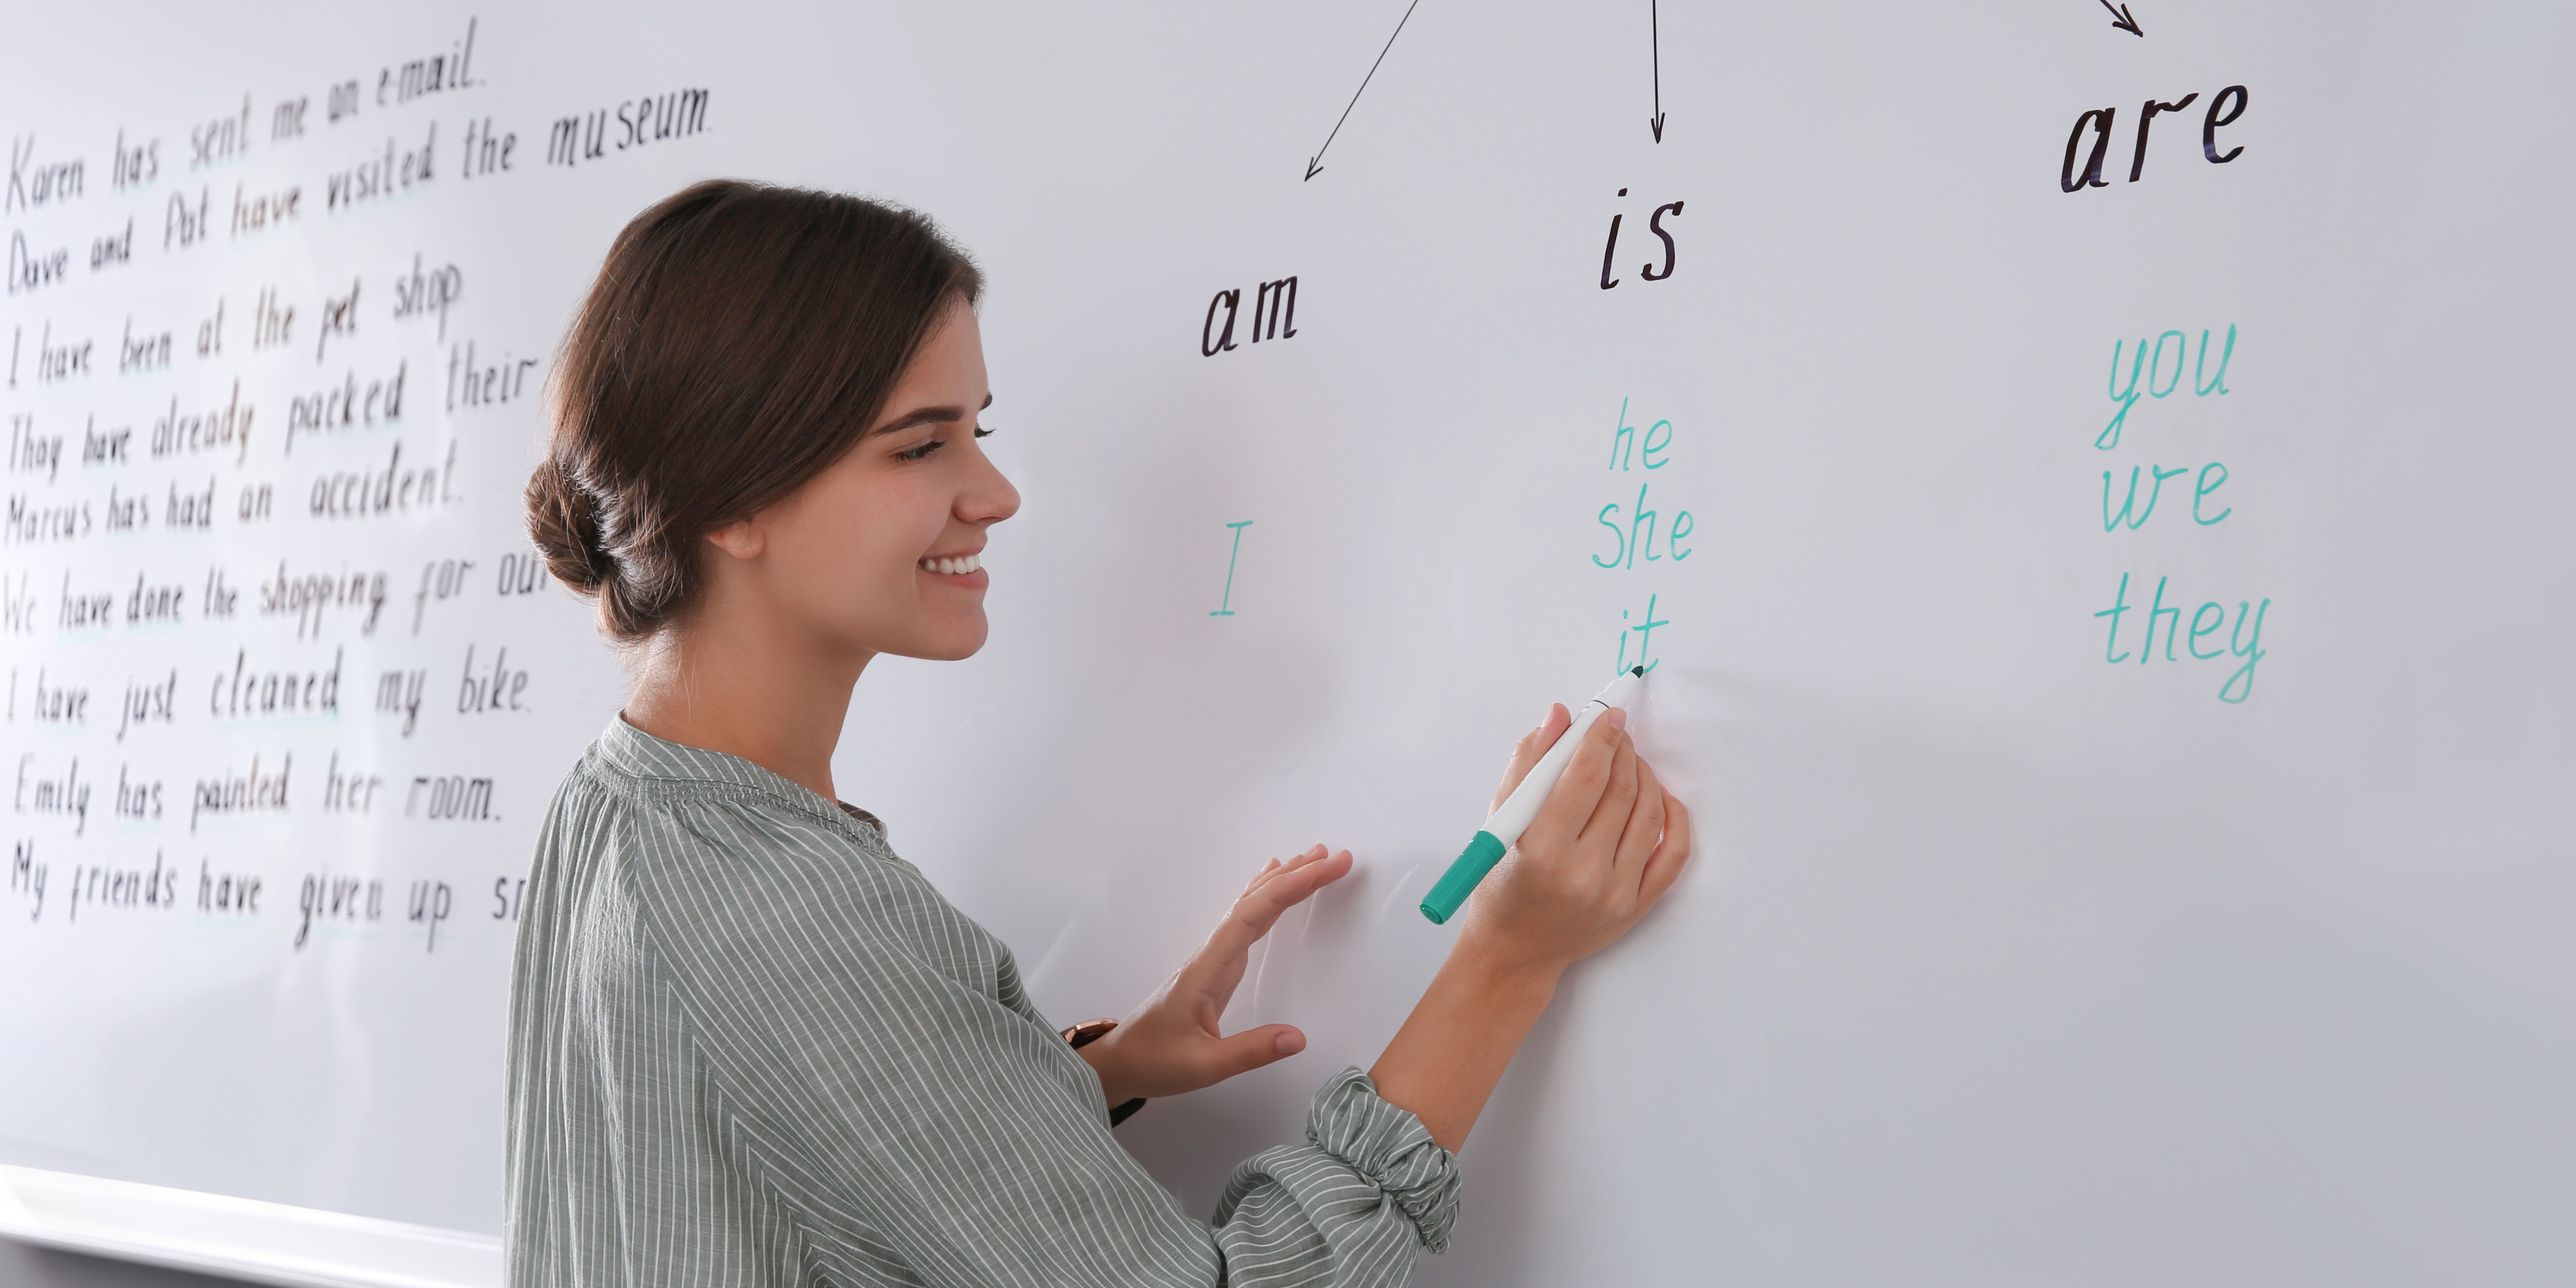 Karen has sent me an e-mail.
Dave and Pat have visited the museum.
I have been at the pet shop
They have already packed their
Marcus has had an accident.
We have done the shopping for our
I have just cleaned my bike.
Emily has painted her room.
My friends have given up
am
I
is
he
she
it
are
you
we
they